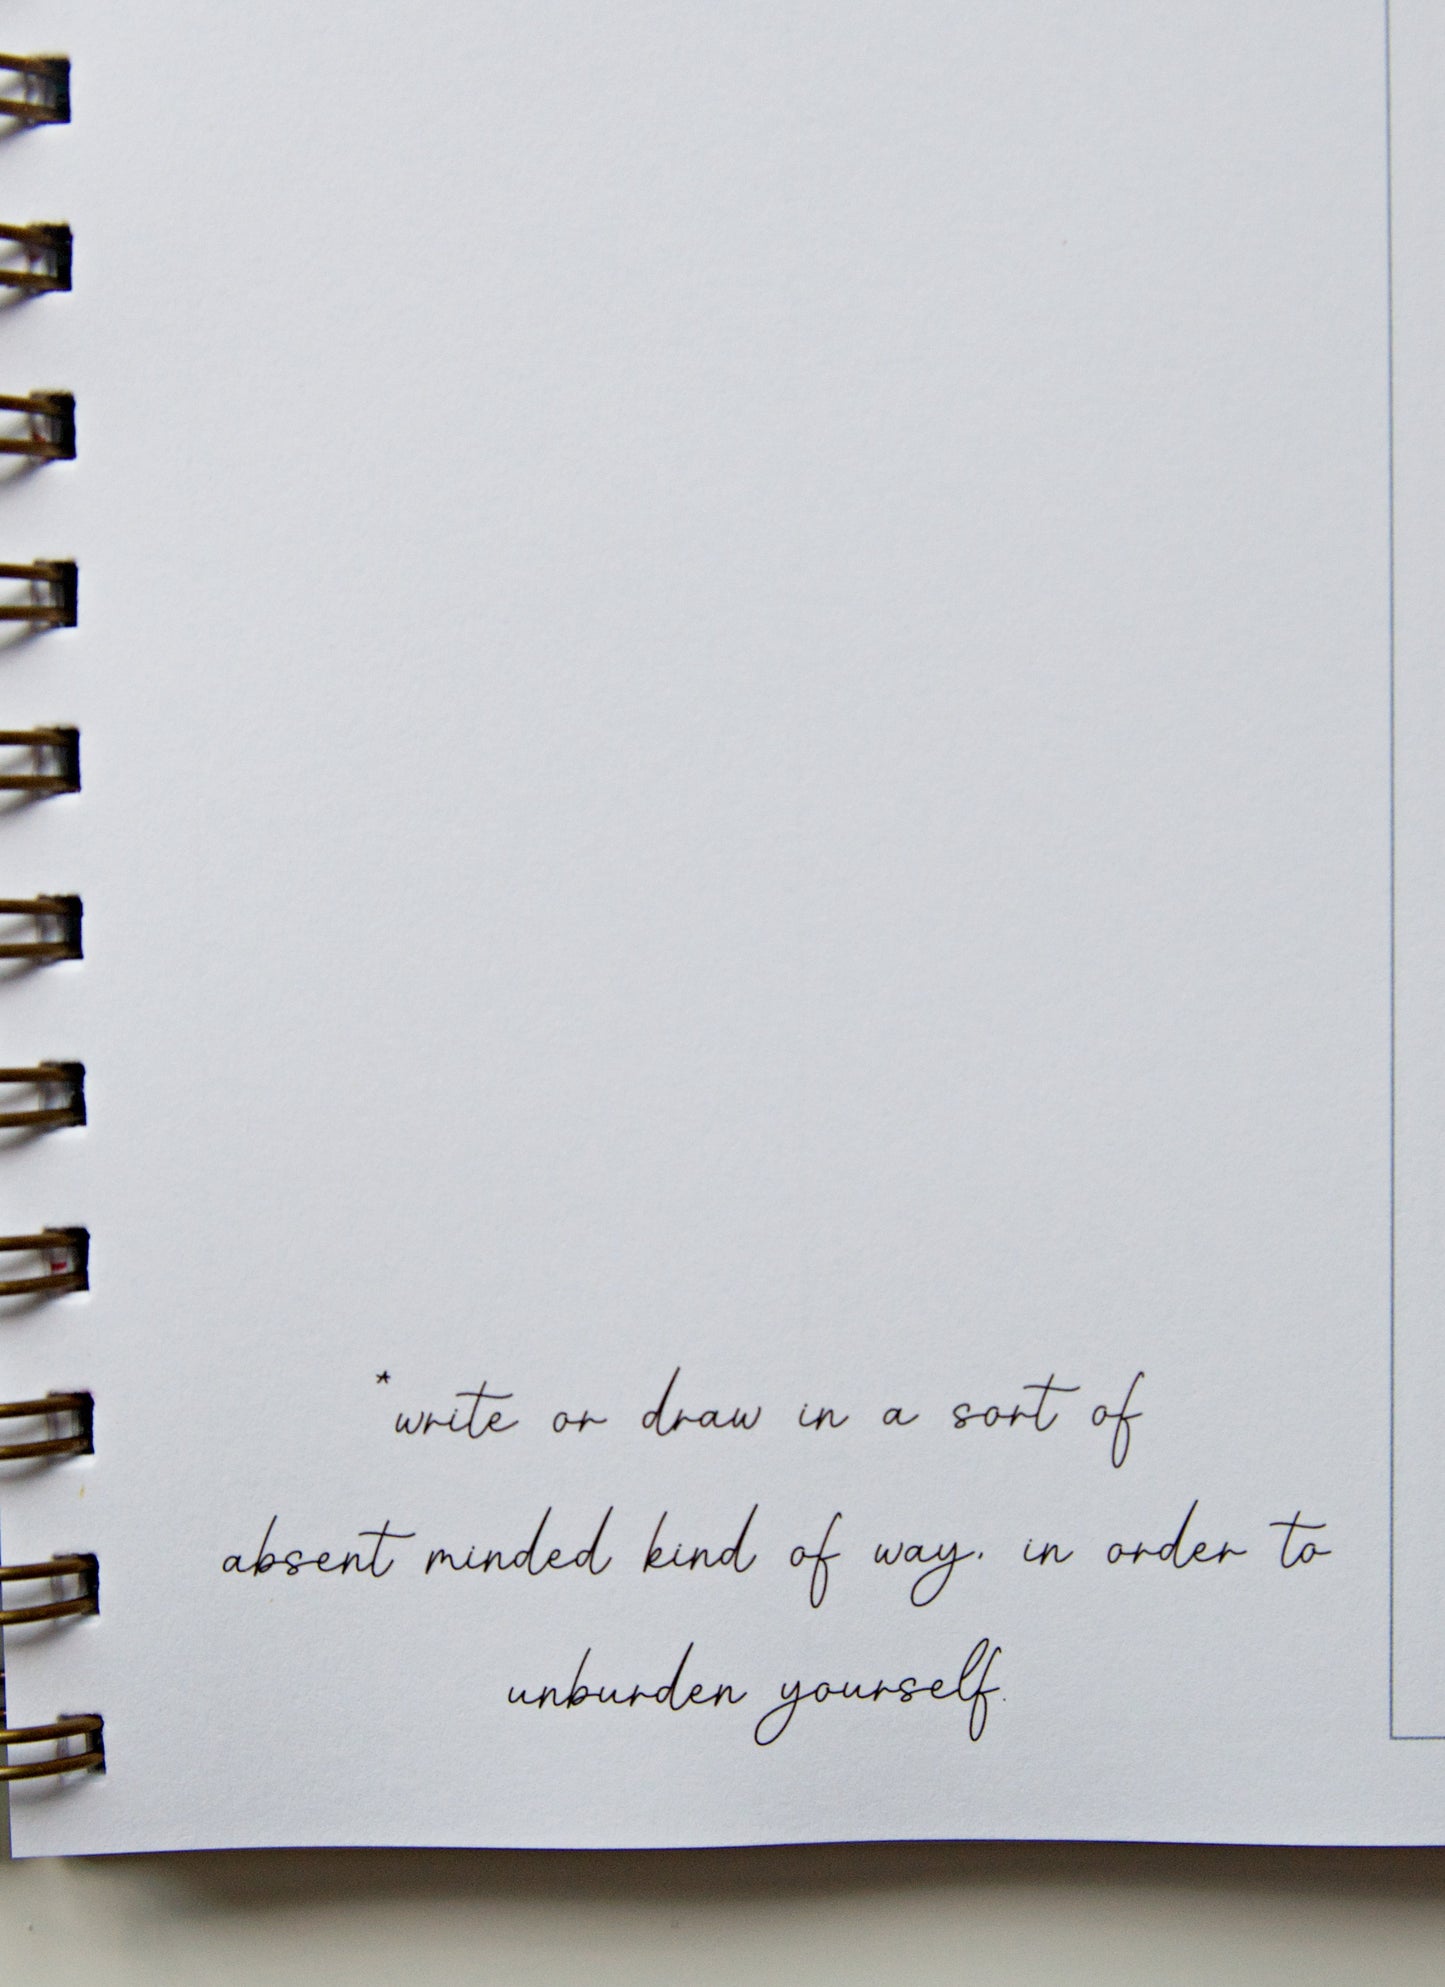 *write or draw in a sort of
absent minded kind of way, in order to
unburden yourself.